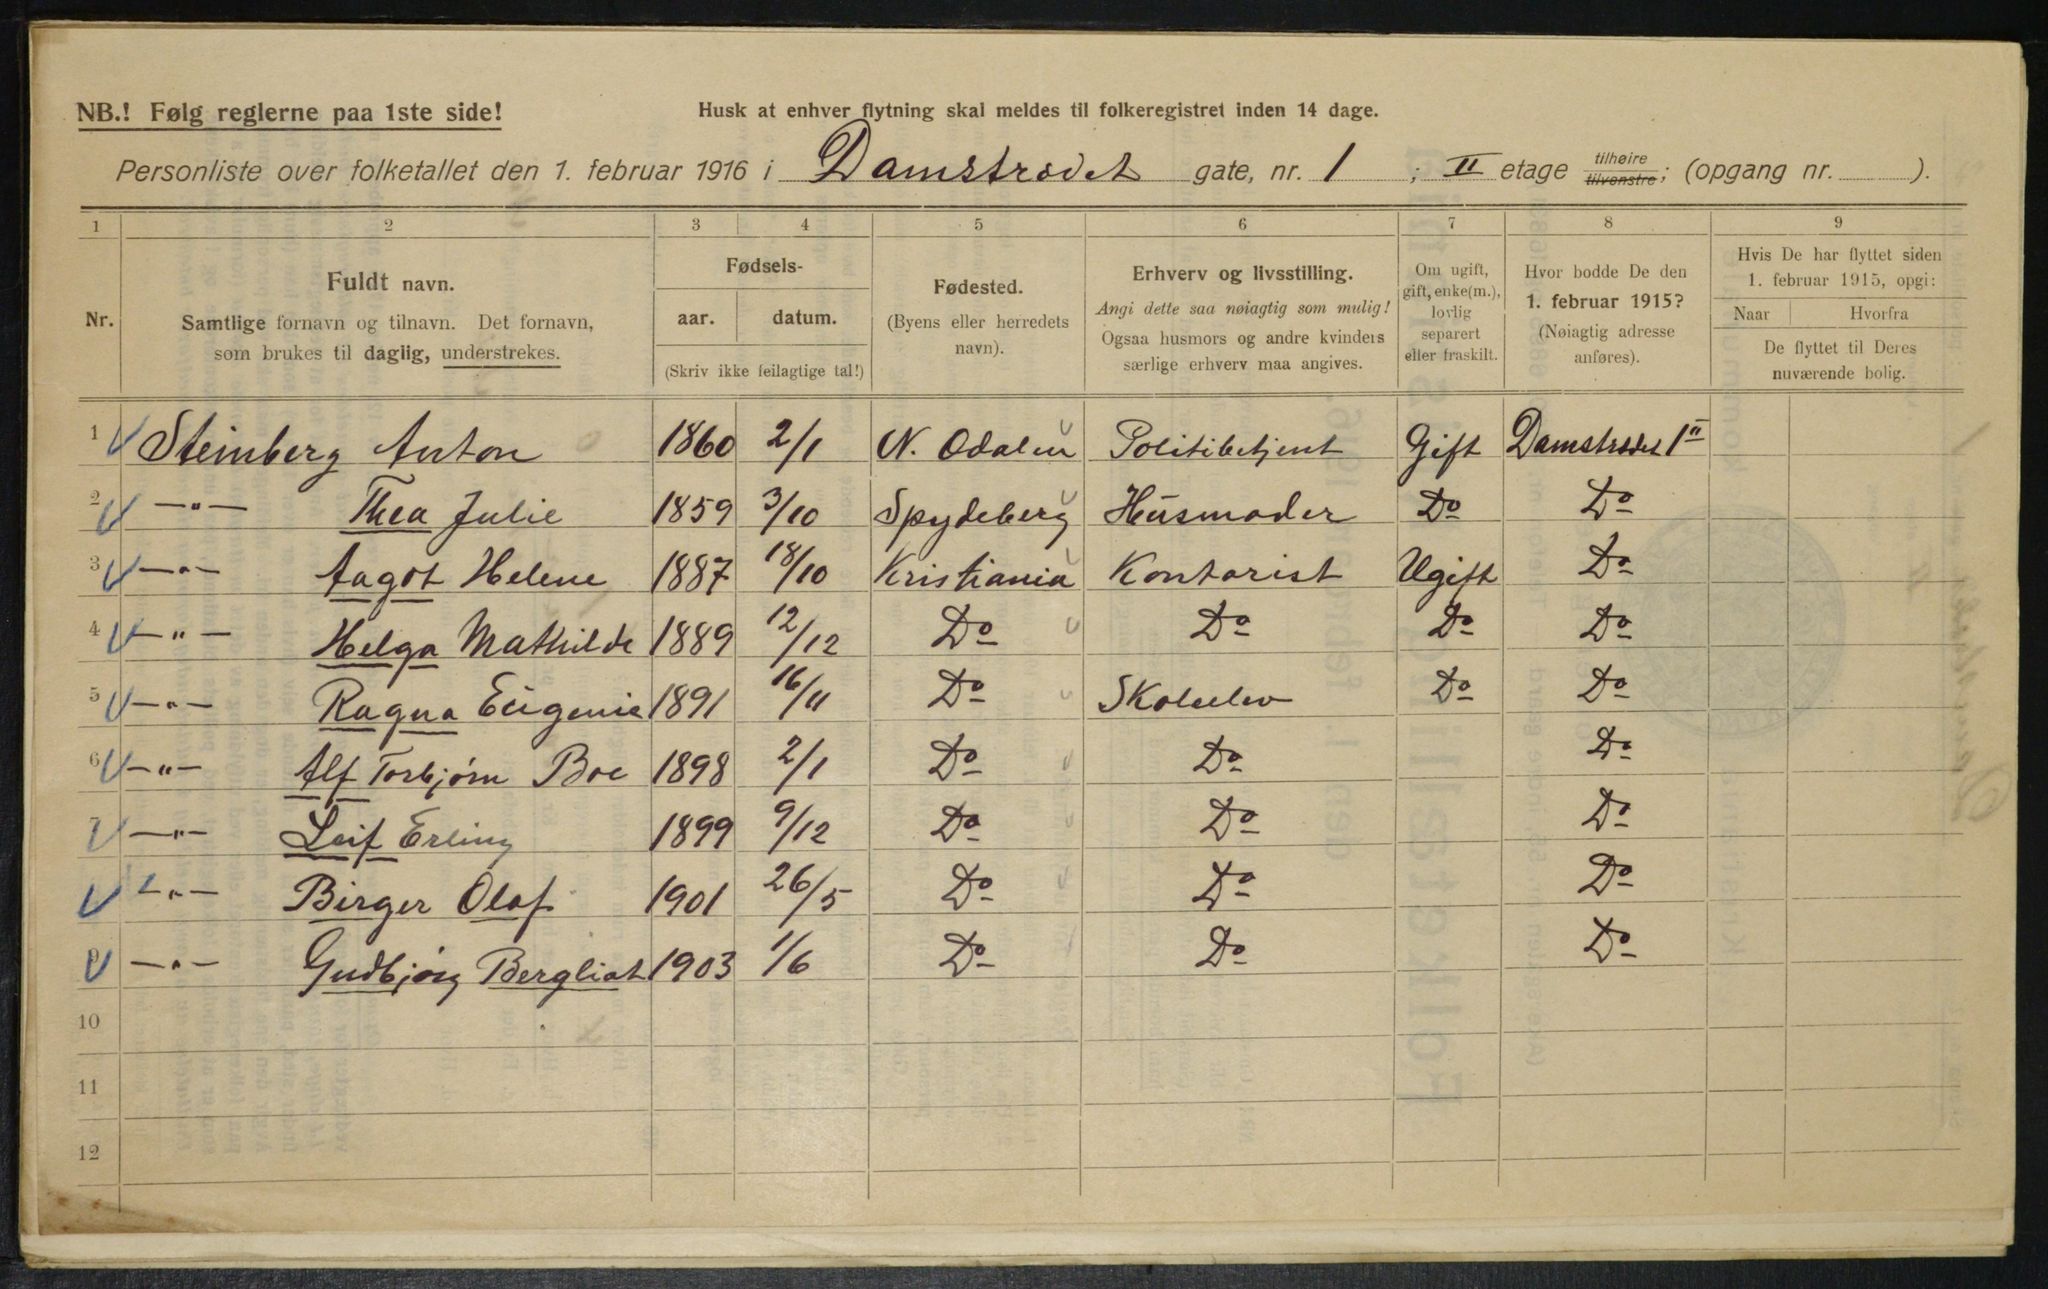 NB.! Følg reglerne paa 1ste side!
Husk at enhver flytning skal meldes til folkeregistret inden 14 dage.
Personliste over folketallet den 1. februar 1916 i Damstrædet gate, nr. 1 ; II etage tilhøire tilvenstre; (opgang nr. ).
1 2 3 4 5 6 7 8 9
Nr.
Fuldt navn.
Samtlige fornavn og tilnavn. Det fornavn,
som brukes til daglig, understrekes.
Fødsels-
aar. datum.
(Skriv ikke feilagtige tal!)
Fødested.
(Byens eller herredets
navn).
Erhverv og livsstilling.
Angi dette saa nøiagtig som mulig!
Ogsaa husmors og andre kvinders
særlige erhverv maa angives.
Om ugift,
gift, enke(m.),
lovlig
separert
eller fraskilt.
Hvor bodde De den
1. februar 1915?
(Nøiagtig adresse
anføres).
Hvis De har flyttet siden
1. februar 1915, opgi:
Naar Hvorfra
De flyttet til Deres
nuværende bolig.
1 Steinberg Anton 1860 2/1 N. Odalen Politibetjent Gift Damstrædet 1 II
2 —"— Thea Julie 1859 3/10 Spydeberg Husmoder Do Do
3 —"— Aagot Helene 1887 18/10 Kristiania Kontorist Ugift Do
4 —"— Helga Mathilde 1889 12/12 Do Do Do Do
5 —"— Ragna Eugenie 1891 16/11 Do Skoleelev Do Do
6 —"— Alf Torbjørn Boe 1898 2/1 Do Do Do
7 —"— Leif Erling 1899 9/12 Do Do Do
—"— Birger Olaf 1901 26/5 Do Do Do
—"— Gudbjørg Bergliot 1903 1/6 Do Do Do
10
11
12